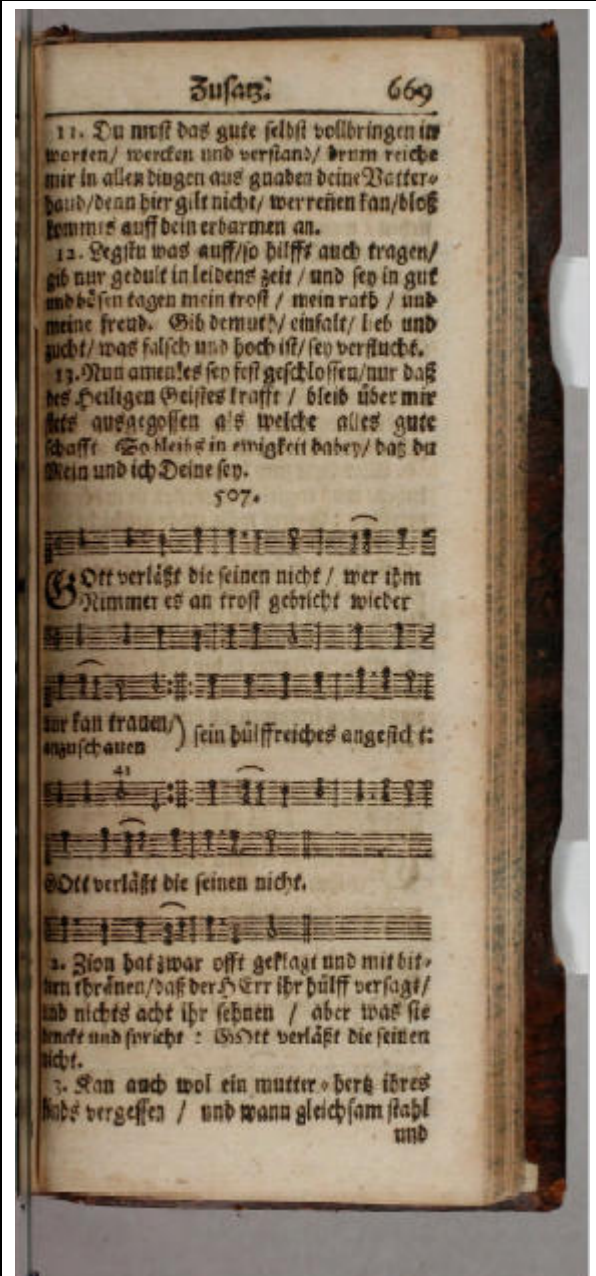 Zusatz. 669
11. Du must das gute selbst vollbringen in
worten/ wercken und verstand/ drum reiche
mir in allen dingen aus gnaden deine Vatter-
hand/denn hier gilt nicht/ wer reñen kan/bloß
kommts auff dein erbarmen an.
12. Legstu was auff/so hilffs auch tragen/
gib nur gedult in leidens zeit / und sey in gut
und bösen tagen mein trost / mein rath / und
meine freud. Gib demuth/ einfalt/ lieb und
zucht/ was falsch und hoch ist/ sey verflucht.
13. Nun amen! es sey fest geschlossen/nur daß
des Heiligen Geistes krafft / bleib über mir
stets ausgegossen als welche alles gute
schafft So bleibs in ewigkeit dabey/ daß du
Mein und ich Deine sey.
507.
GOtt verläßt die seinen nicht / wer ihm
Nimmer es an trost gebricht wieder
nur kan trauen/
anzuschauen ) sein hülffreiches angesicht:
GOtt verläßt die seinen nicht.
2. Zion hat zwar offt geklagt und mit bit-
tern thränen/daß der HErr ihr hülff versagt/
und nichts acht ihr sehnen / aber was sie
denckt und spricht : GOtt verläßt die seinen
nicht.
3. Kan auch wol ein mutter-hertz ihres
kinds vergessen / und wann gleichsam stahl
und